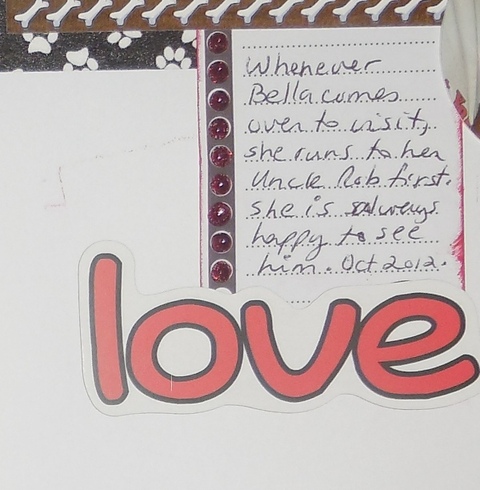 Whenever
Bella comes
over to visit,
she runs to her
Uncle Rob first.
She is always
happy to see
him. Oct 2012.
love